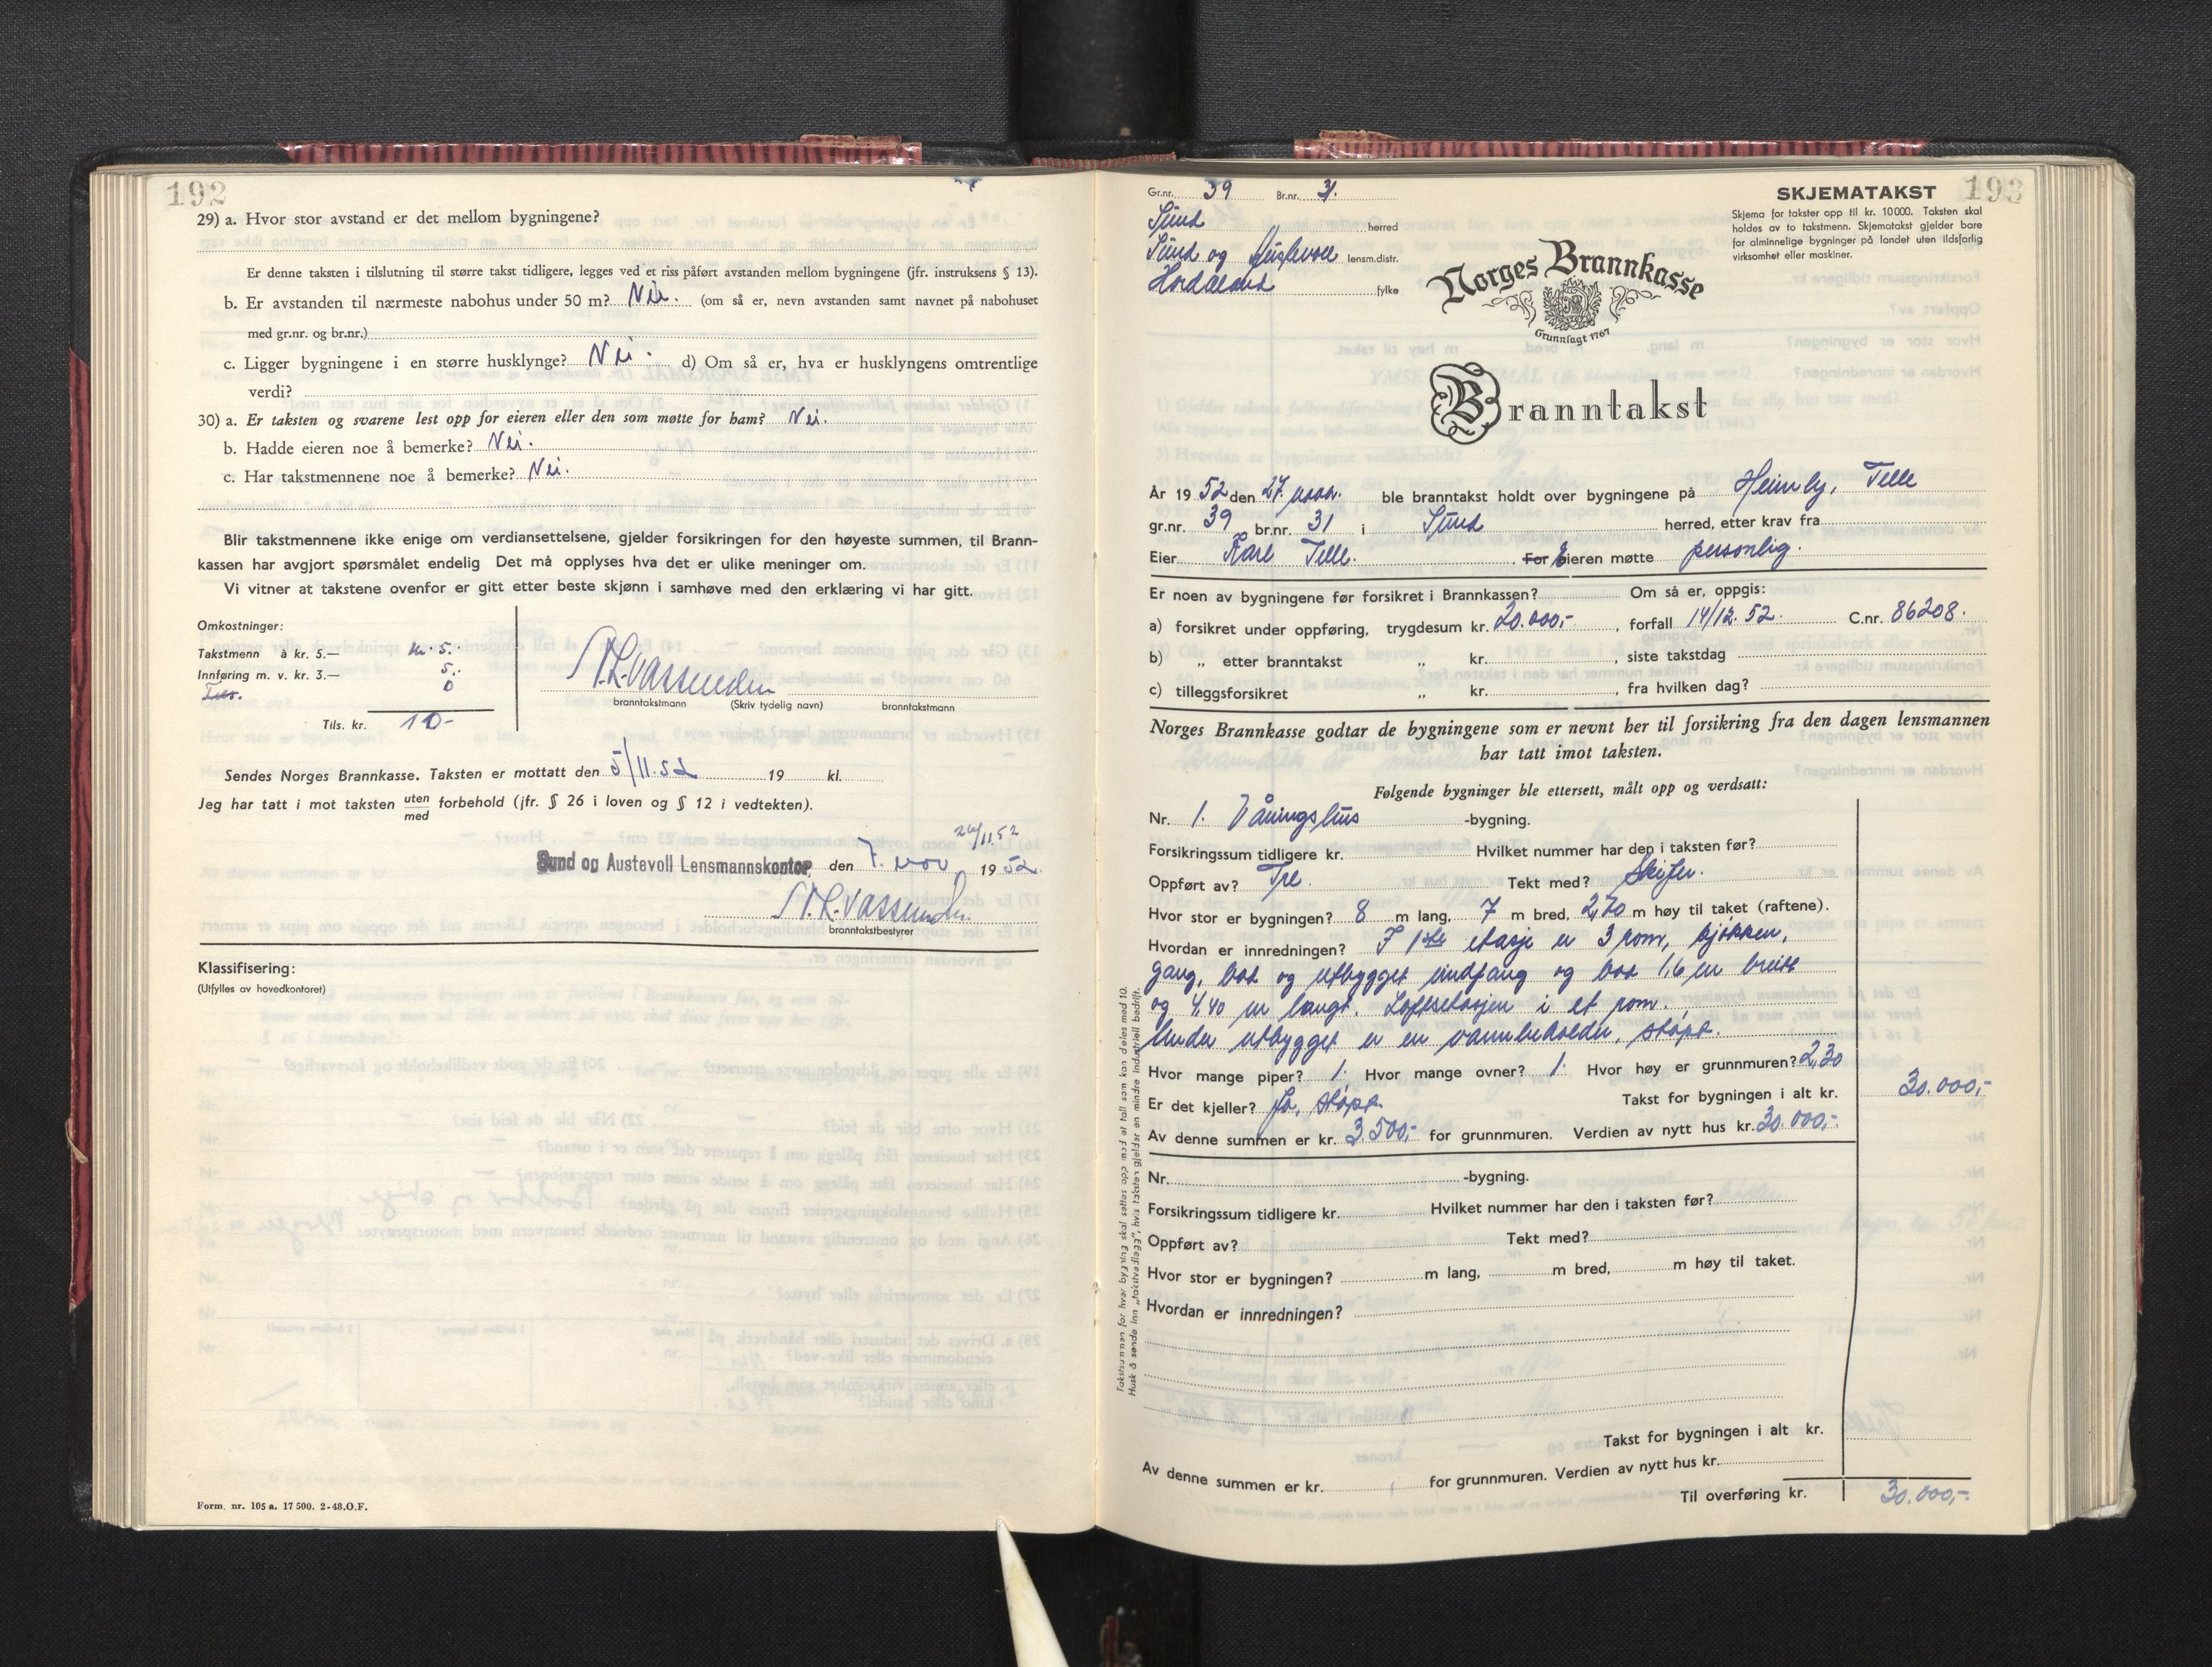 192
29) a. Hvor stor avstand er det mellom bygningene?
Er denne taksten i tilslutning til større takst tidligere, legges ved et riss påført avstanden mellom bygningene (jfr. instruksens § 13).
b. Er avstanden til nærmeste nabohus under 50 m? Nei. (om så er, nevn avstanden samt navnet på nabohuset
med gr.nr. og br.nr.)
c. Ligger bygningene i en større husklynge? Nei. d) Om så er, hva er husklyngens omtrentlige
verdi?
30) a. Er taksten og svarene lest opp for eieren eller den som møtte for ham? Nei.
b. Hadde eieren noe å bemerke? Nei.
c. Har takstmennene noe å bemerke? Nei.
Blir takstmennene ikke enige om verdiansettelsene, gjelder forsikringen for den høyeste summen, til Brann-
kassen har avgjort spørsmålet endelig Det må opplyses hva det er ulike meninger om.
Vi vitner at takstene ovenfor er gitt etter beste skjønn i samhøve med den erklæring vi har gitt.
Omkostninger:
Takstmenn à kr. 5.— kr. 5.-
Innføring m. v. kr. 3.— 5.-
0
Tils. kr. 10-
Vassenden
branntakstmann (Skriv tydelig navn) branntakstmann
Sendes Norges Brannkasse. Taksten er mottatt den 5/11.52 19 kl.
Jeg har tatt i mot taksten uten forbehold (jfr. § 26 i loven og § 12 i vedtekten).
med
26/11.52
Sund og Austevoll Lensmannskontor, den 7. nov 1952.
Vassenden
branntakstbestyrer
Klassifisering:
(Utfylles av hovedkontoret)
Form. nr. 105 a. 17 500. 2-48.O.F.
193
Gr.nr. 39 Br.nr. 31.
Sund herred
Sund og Austevoll lensm.distr.
Hordaland fylke
SKJEMATAKST
Skjema for takster opp til kr. 10000. Taksten skal
holdes av to takstmenn. Skjematakst gjelder bare
for alminnelige bygninger på landet uten ildsfarlig
virksomhet eller maskiner.
Norges Brannkasse
Grunnlagt 1767
Branntakst
År 1952 den 27. ble branntakst holdt over bygningene på Heimly, Telle
gr.nr. 39 br.nr. 31 i Sund herred, etter krav fra
Eier Karl Telle. For Eieren møtte personlig.
Er noen av bygningene før forsikret i Brannkassen? Om så er, oppgis:
a) forsikret under oppføring, trygdesum kr. 20.000,- , forfall 14/12.52. C.nr. 86208.
b) „ etter branntakst „ kr. , siste takstdag
c) tilleggsforsikret „ kr. , fra hvilken dag?
Norges Brannkasse godtar de bygningene som er nevnt her til forsikring fra den dagen lensmannen
har tatt imot taksten.
Følgende bygninger ble ettersett, målt opp og verdsatt:
Nr. 1. Våningshus -bygning.
Forsikringssum tidligere kr. Hvilket nummer har den i taksten før?
Oppført av? Tre Tekt med? Skifer.
Hvor stor er bygningen? 8 m lang, 7 m bred, 2,70 m høy til taket (raftene).
Hvordan er innredningen? I 1ste etasje er 3 rom, kjøkken,
gang, bod og utbygget vindfang og bod 1,6 m breitt
og 4,40 m langt. Loftsetasjen i et rom.
Under utbygget er en vannbeholder, støpt.
Hvor mange piper? 1. Hvor mange ovner? 1. Hvor høy er grunnmuren? 2,30
Er det kjeller? Ja, støpt. Takst for bygningen i alt kr. 30.000,-
Av denne summen er kr. 3.500,- for grunnmuren. Verdien av nytt hus kr. 30.000,-
Nr. -bygning.
Forsikringssum tidligere kr. Hvilket nummer har den i taksten før?
Oppført av? Tekt med?
Hvor stor er bygningen? m lang, m bred, m høy til taket.
Hvordan er innredningen?
Takst for bygningen i alt kr.
Av denne summen er kr. for grunnmuren. Verdien av nytt hus kr.
Til overføring kr. 30.000,-
Takstsummen for hver bygning skal settes opp med et tall som kan deles med 10.